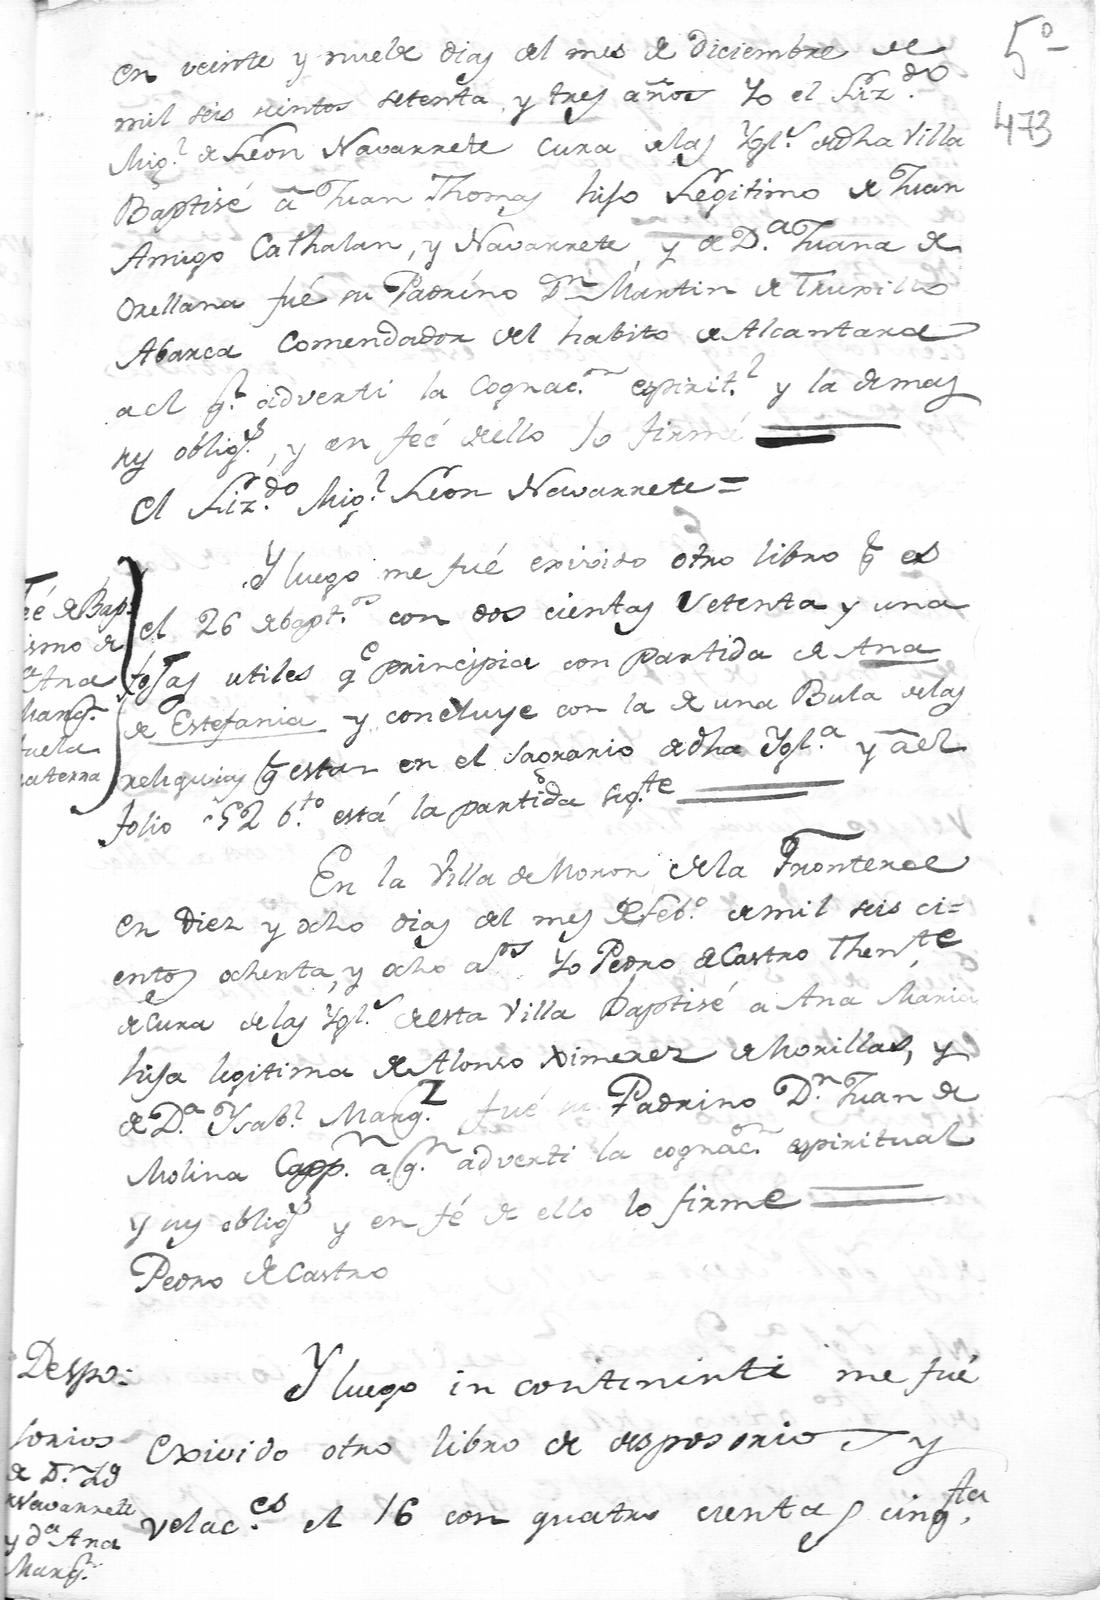 5º
473
en veinte y nueve dias del mes de Diciembre de
mil seis cientos setenta y tres años Yo el Liz.do
Mig.l de Leon Navarrete Cura delas Ygl.s de dha Villa
Baptisé â Juan Thomas hijo Legitimo de Juan
Amigo Cathalan, y Navarrete, y de D.a Juana de
Orellana fué su Padrino Dn Martin de Truxillo
Abarca Comendador del habito de Alcantara
acl q.l adverti la Cognac.on espirit.l y la demas
sus oblig.s, y en feé dello lo firmé
el Liz.do Mig.l Leon Navarrete =
Y luego me fué exivido otro libro q̃ es
el 26 de bapt.os con dos cientas Setenta y una
fojas utiles qe principia con partida de Ana
de Estefania y concluye con la de una Bula delas
reliquias q̃ estan en el Sagrario de dha Ygl.a y âel
folio 52 b.to está la partida sig.te
Feé de Bap-
ismo de
D.a Ana
Marq.z
Abuela
materna
En la Villa de Moron dela Frontera
en Diez y ocho dias del mes de Feb.o de mil seis ci=
entos ochenta, y ocho a.os Yo Pedro de Castro Then.te
de Cura delas Ygl.s de esta Villa Baptisé a Ana Maria
hija legitima de Alonso Ximenez de Morillas, y
de D.a Ysab.l Marq.z fué su Padrino D.n Juan de
Molina Capp.n a q.n adverti la cognac.on espiritual
y sus oblig.s y en fé de ello lo firme
Pedro de Castro
Y luego in continenti me fué
Exivido otro libro de desposorios y
velac.es el 16 con quatro cientas cinq.ta
Despo-
sorios
de D.n
Navarrete
y d.a Ana
Marq.z